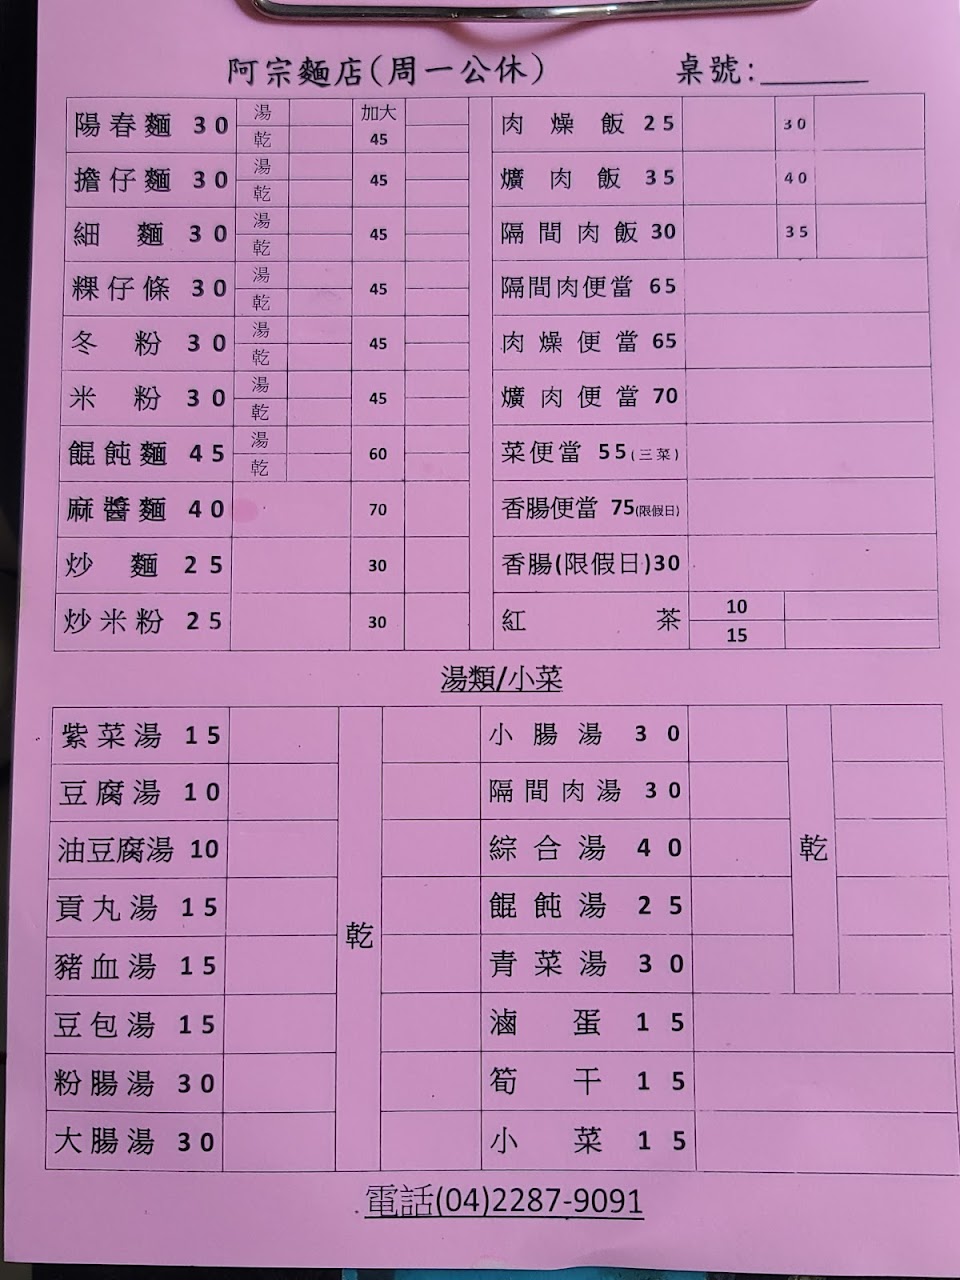 阿宗麵店(周一公休) 桌號:______
陽春麵 30 湯 乾 加大 45
擔仔麵 30 湯 乾 45
細麵 30 湯 乾 45
粿仔條 30 湯 乾 45
冬粉 30 湯 乾 45
米粉 30 湯 乾 45
餛飩麵 45 湯 乾 60
麻醬麵 40 70
炒麵 25 30
炒米粉 25 30
肉燥飯 25 30
爌肉飯 35 40
隔間肉飯 30 35
隔間肉便當 65
肉燥便當 65
爌肉便當 70
菜便當 55(三菜)
香腸便當 75(限假日)
香腸(限假日)30
紅茶 10 15
湯類/小菜
紫菜湯 15
豆腐湯 10
油豆腐湯 10
貢丸湯 15
豬血湯 15
豆包湯 15
粉腸湯 30
大腸湯 30
乾
小腸湯 30
隔間肉湯 30
綜合湯 40
餛飩湯 25
青菜湯 30
乾
滷蛋 15
筍干 15
小菜 15
電話(04)2287-9091